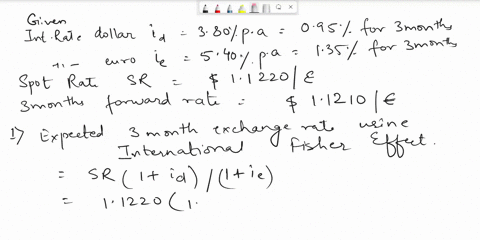 Given
Int. Rate dollar id = 3.80% p.a = 0.95% for 3months
-11- euro ie = 5.40% p.a = 1.35% for 3 months
Spot Rate SR = $ 1.1220/£
3months forward rate = $ 1.1210/€
1) Expected 3 month exchange rate using
International Fisher Effect.
= SR (1+id)/(1+ie)
= 1.1220 (1.